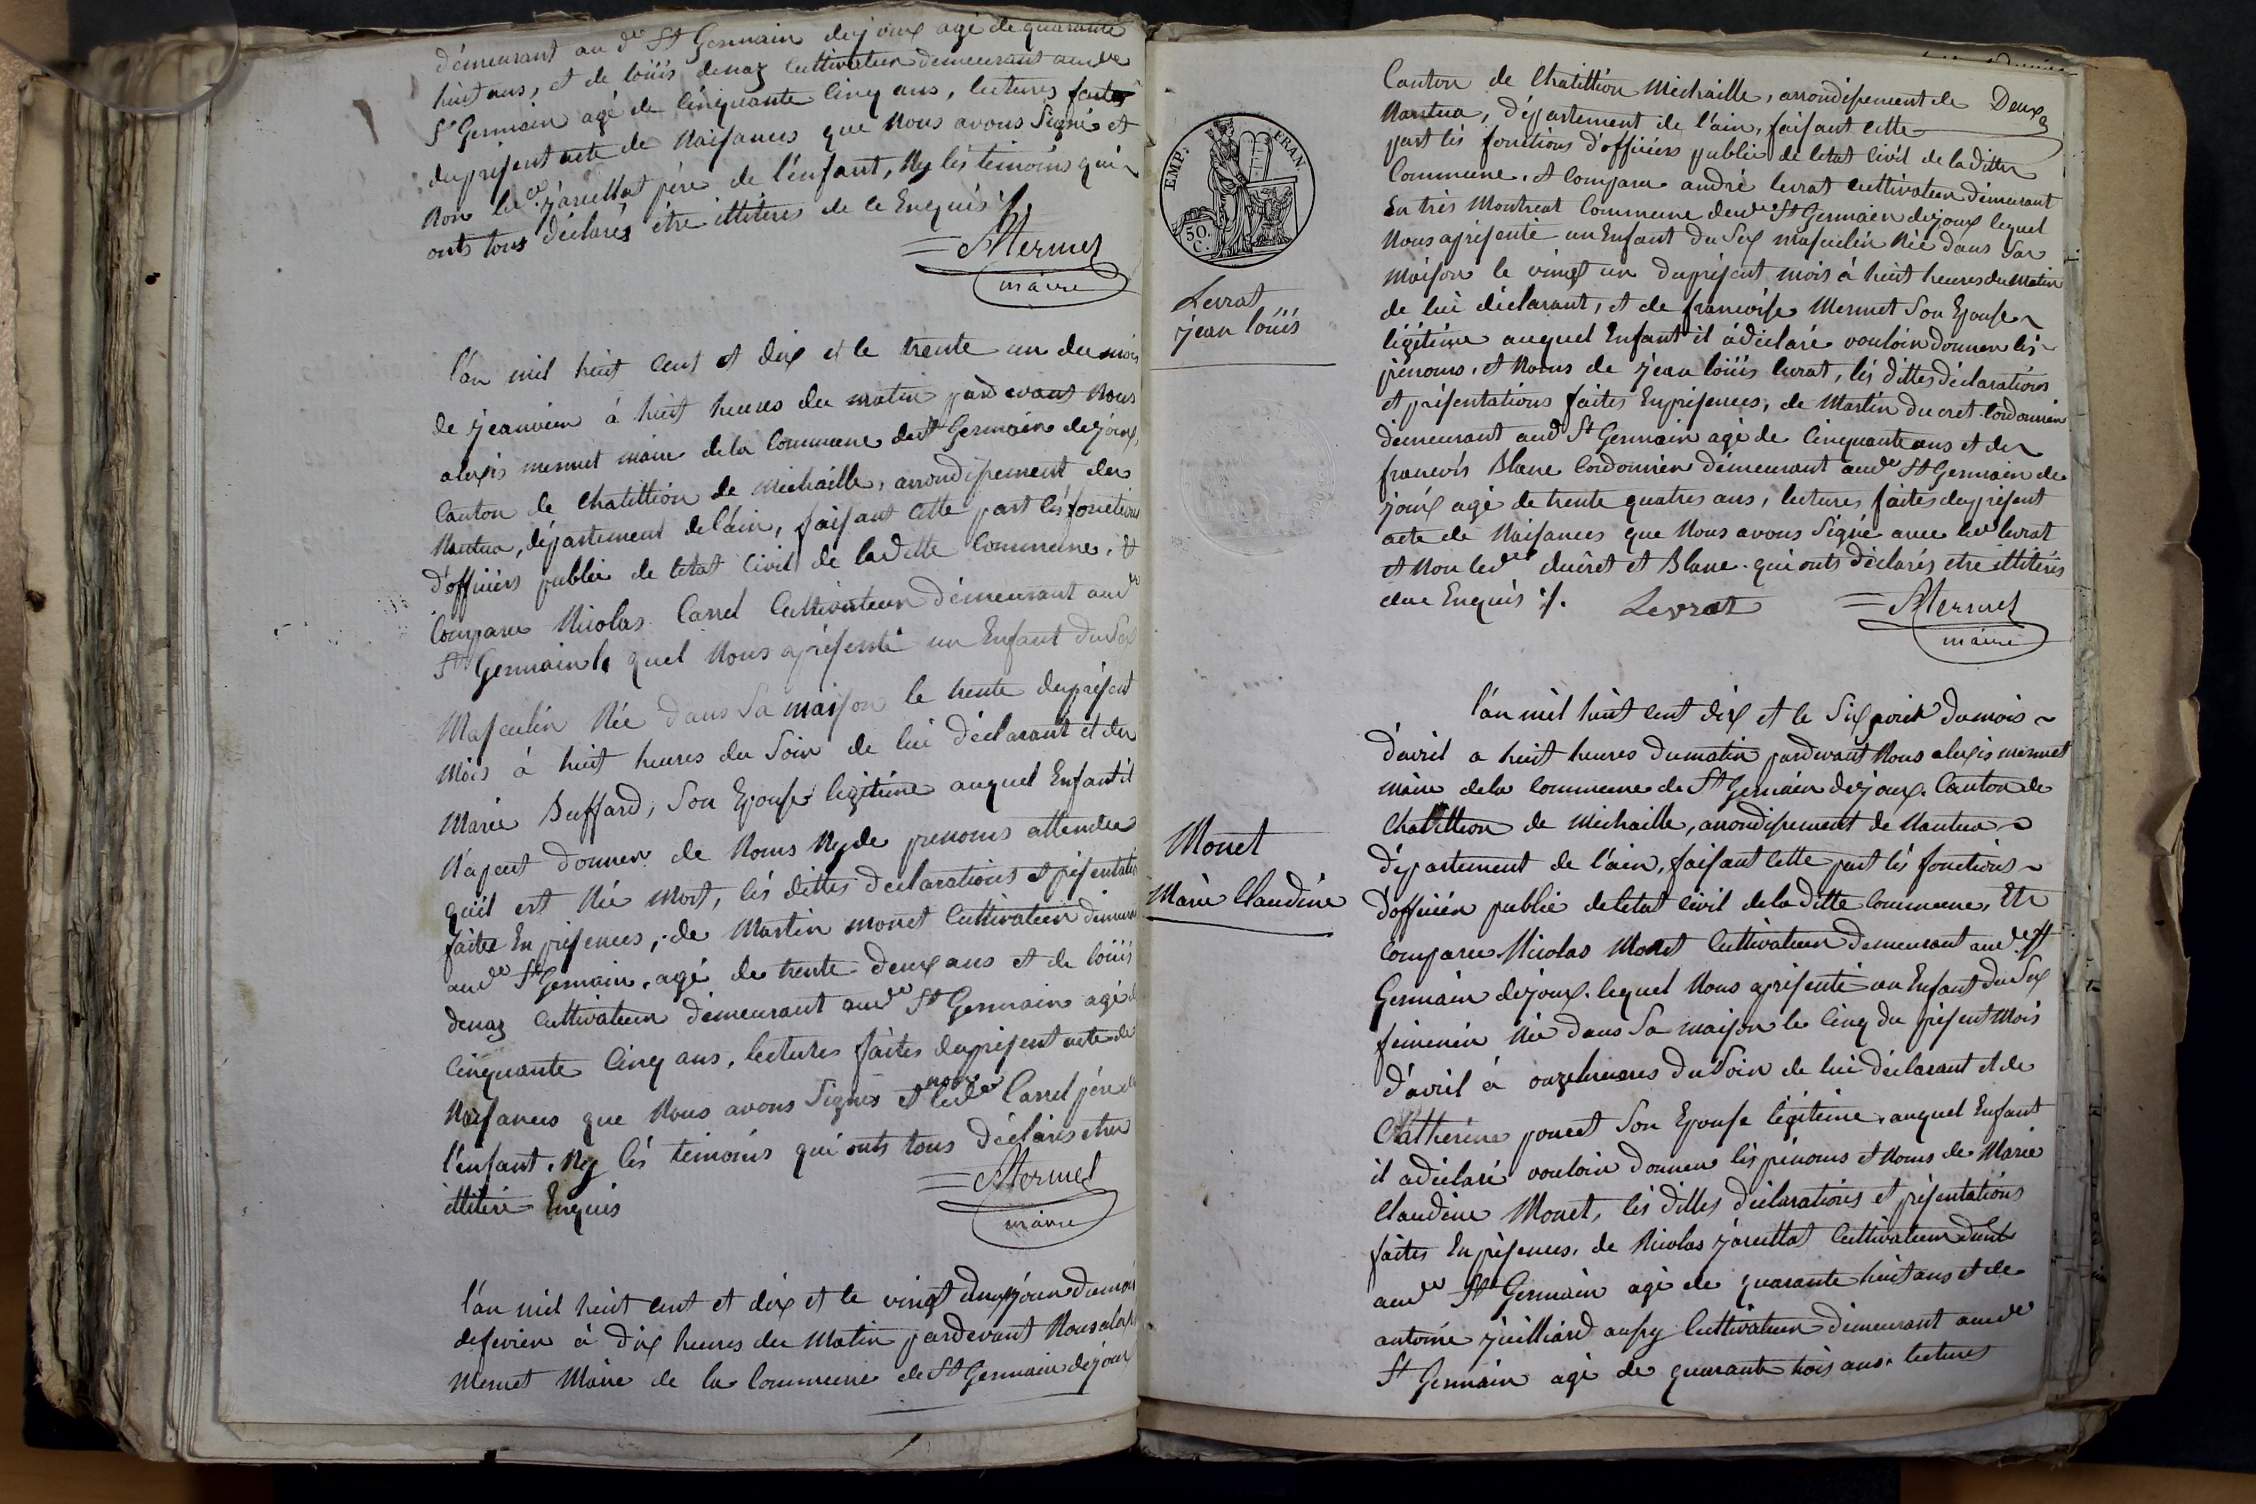 démeurant au de St Germain dejoux agé de quarante
huit ans, et de loüis denaz Cultivateur demeurant aude
St Germain agé de Cinquante Cinq ans, lectures faites
duprésent acte de Naissances que Nous avons Signé et
Non led. jàcuillat pére de l'énfant, Ny les témoins qui
onts tous déclarés étre illiteres de ce Enquis ./.
AMermet
maire
l'an mil huit cent et dix et le trente un du mois
de jeanvier à huit heures du matin pard evant Nous
alexis mermet maire dela Commune de St Germain dejoux,
Canton de Chatillion de Michaille, arrondissement de
Nantua, département de l'ain, faisant cette part lés fonctions
d'officiers publie de letat Civil de laditte Commune, et
Comparu Nicolas Carrel Cultivateur démeurant aude
St Germain le quel Nous a présenté un Enfant du Sex
Masculin Née dans Sa maison le trente duprésent
Mois à huit heures du Soir de lui déclarant et de
Marie Buffard, Son Epouse legitime auquel Enfant il
N'apeut donner de Noms Ny de prenoms attendu
qu'il est Née Mort, lés dittes déclarations et présentations
faites En présences, de Martin monet Cultivateur demeurant
aude St Germain, agé de trente deux ans et de loüis
denaz Cultivateur démeurant aude St Germain agé de
Cinquante Cinq ans, lectures faites duprésent acte de
Naissances que Nous avons Signés et non led. Carrel pére de
l'enfant, Ny lés témoins qui onts tous déclarés etre
illitere Enquis
AMermet
maire
l'an mil huit cent et dix et le vingt deux jour du mois
de fevrier à dix heures du Matin pardevant Nous alexis
Mermet Maire de la Commune de St Germain dejoux
EMP. FRAN.
50. C.
Levrat
jean loüis
Deux
Canton de Chatillion Michaille, arrondissement de
Nantua, département de l'ain, faisant cette
part lés fonctions d'officiers public de letat Civil de laditte
Commune, et Comparu andré levrat cultivateur démeurant
En trés Montreat Commune dude St Germain dejoux lequel
Nous a présenté un Enfant du Sex masculin Née dans Sa
Maison le vingt un duprésent mois à huit heures du Matin
de lui déclarant, et de francoise Mermet Son Epouse
légitime auquel Enfant il à déclaré vouloir donner lés
prénoms, et Noms de jean loüis levrat, lés dittes déclarations
et présentations faites En présences, de Martin ducret Cordonnier
démeurant aud St Germain agé de Cinquante ans et de
francois Blanc Cordonnier démeurant aude St Germain de
joux agé de trente quatres ans, lectures faites duprésent
acte de Naissances que Nous avons Signé avec led levrat
et Non led. ducret et Blanc qui onts déclarés etre illiterés
de ce Enquis ./. Levrat
AMermet
maire
Monet
Marie Claudine
l'an mil huit cent dix et le Six jour du mois
d'avril a huit heures du matin pardevant Nous alexis mermet
maire dela Commune de St Germain dejoux, Canton de
Chatillion de Michaille, arrondissement de Nantua
département de l'ain, faisant cette part lés fonctions
d'officiér publie de letat Civil de laditte Commune, Et
Comparu Nicolas Monet Cultivateur demeurant aude St
Germain dejoux, lequel Nous a présenté un Enfant du Sex
féminin Née dans Sa maison le Cinq du présent Mois
d'avril à onze heures du Soir de lui déclarant et de
Catherine poncet Son Epouse légitime, auquel Enfant
il adéclaré vouloir donner lés prénoms et Noms de Marie
Claudine Monet, lés dittes déclarations et présentations
faites En présences, de Nicolas jàcuillat Cultivateur
aude St Germain agé de quarante huit ans et de
antoine juilliard aussy Cultivateur demeurant aude
St Germain agé de quarante trois ans, lectures